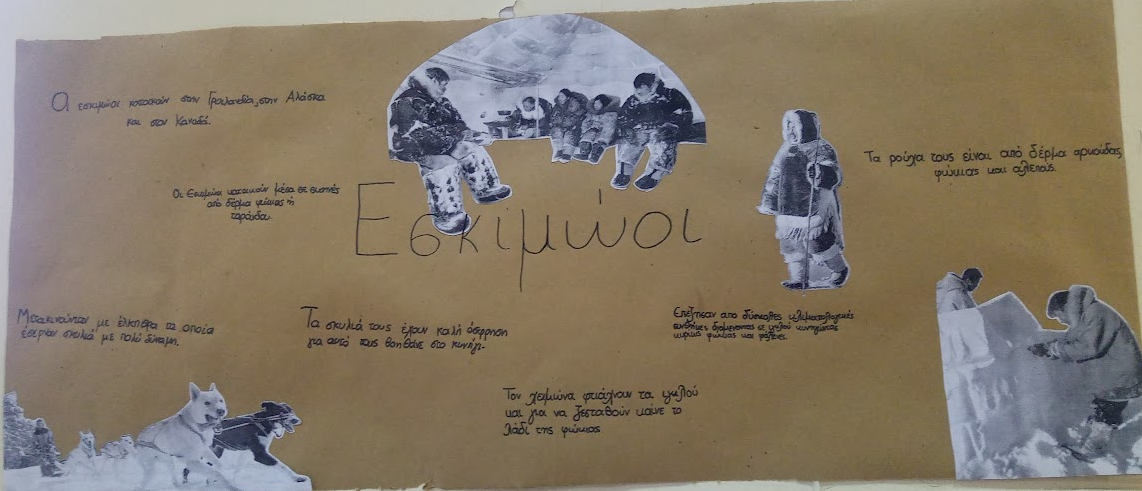 Οι εσκιμώοι κατοικούν στην Γροιλανδία, στην Αλάσκα
και στον Καναδά.
Οι Εσκιμώοι κατοικούν μέσα σε σκηνές
από δέρμα φώκιας ή
ταράνδου.
Εσκιμώοι
Τα ρούχα τους είναι από δέρμα αρκούδας,
φώκιας και αλεπούς.
Μετακινούνταν με έλκηθρα τα οποία
έσερναν σκυλιά με πολύ δύναμη.
Τα σκυλιά τους έχουν καλή όσφρηση
για αυτό τους βοηθάνε στο κυνήγι.
Επέζησαν απο δύσκολες κλιματολογικές
συνθήκες διαμένοντας σε ιγκλού κυνηγώντας
κυρίως φώκιες και φάλαινες.
Τον χειμώνα φτιάχνουν τα ιγκλού
και για να ζεσταθούν καίνε το
λάδι της φώκιας